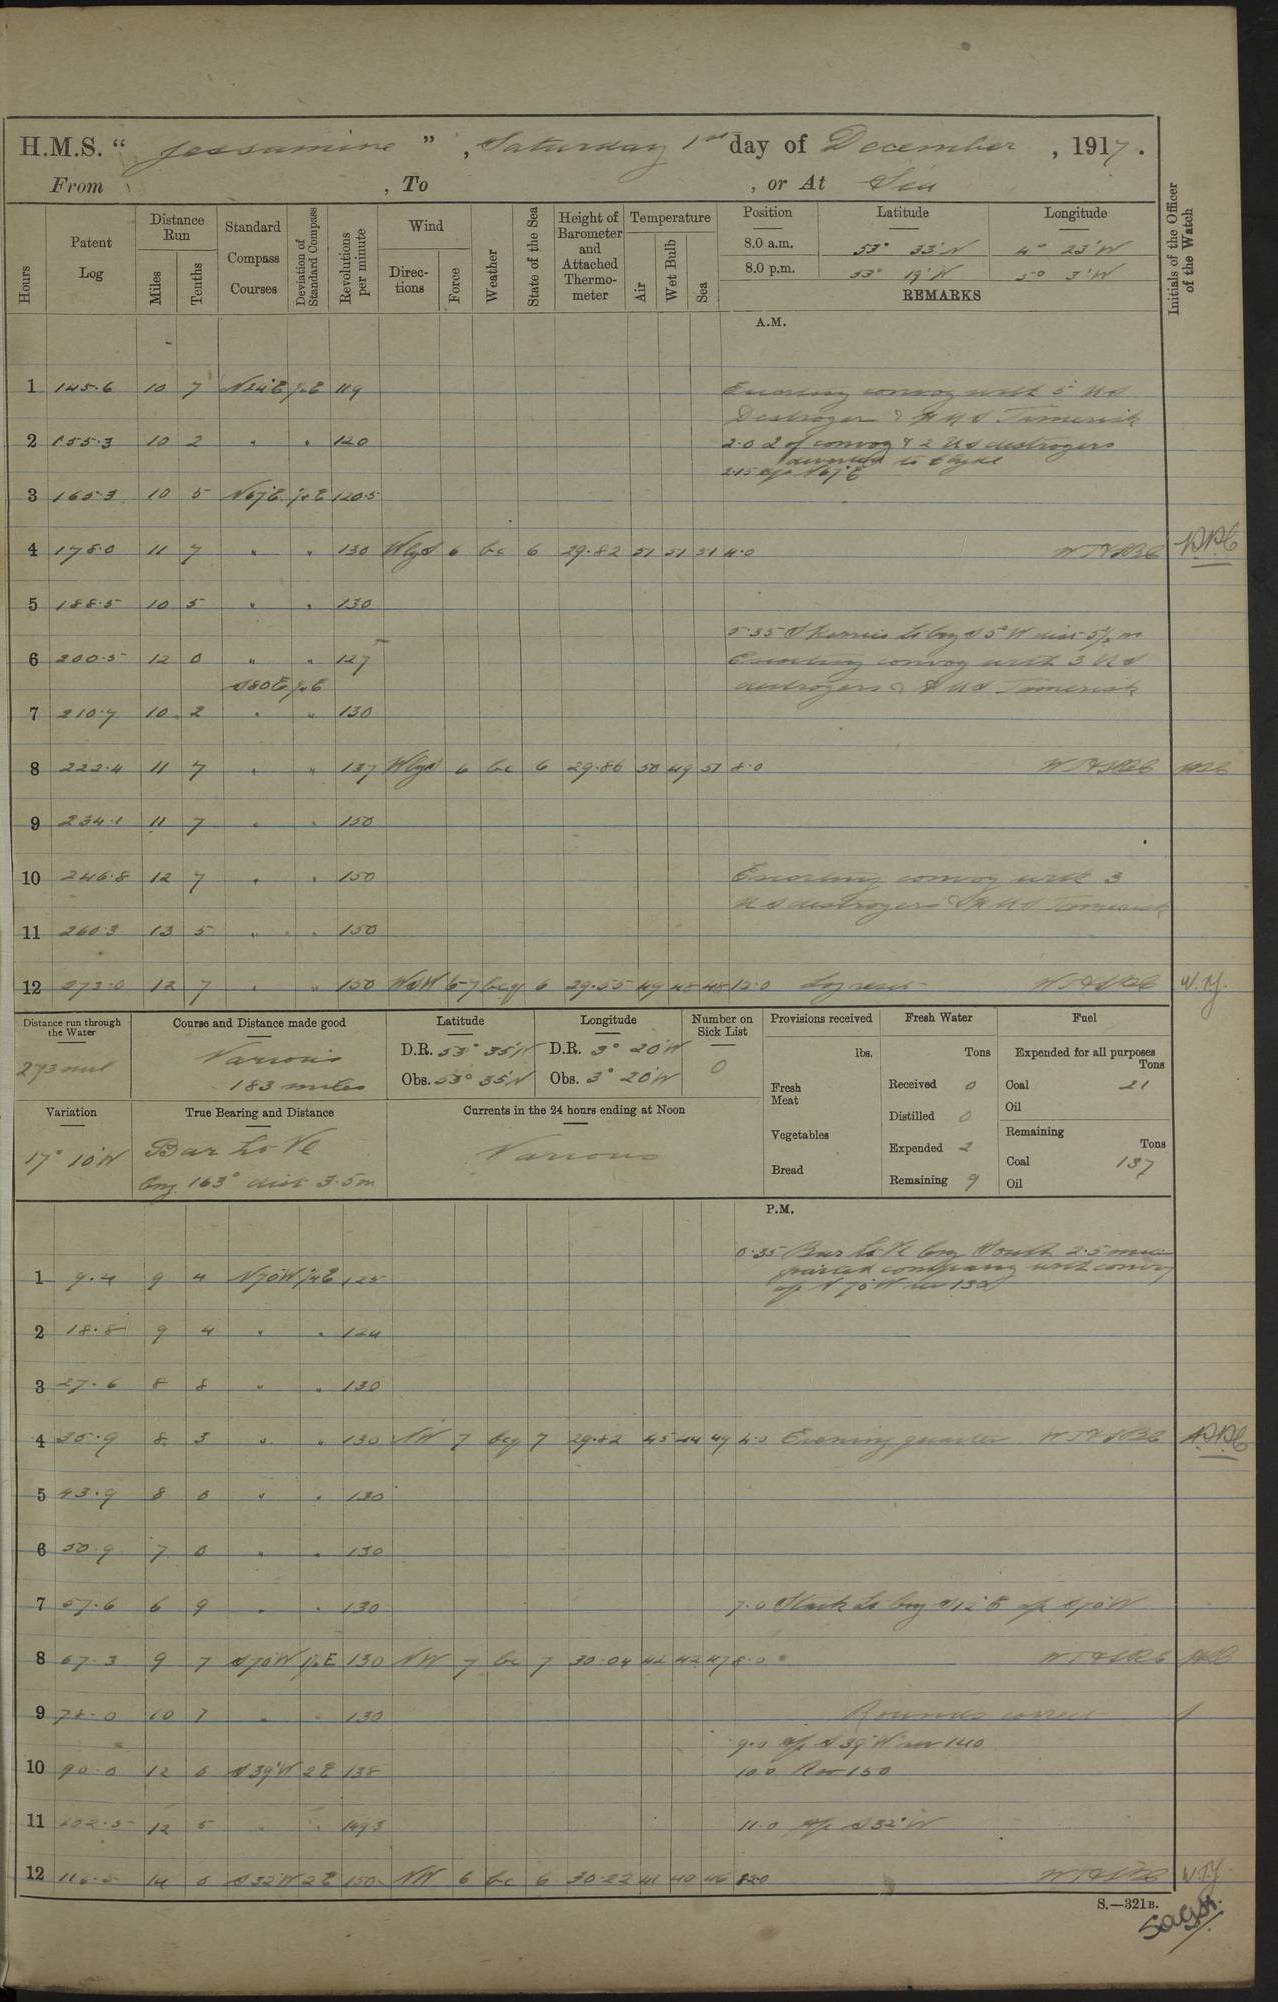 H.M.S. “ Jessamine ” , Saturday 1st day of December , 1917.
From , To , or At Sea
Hours
Patent Log
Distance Run
Miles
Tenths
Standard Compass Courses
Deviation of Standard Compass
Revolutions per minute
Wind
Directions
Force
Weather
State of the Sea
Height of Barometer and Attached Thermometer
Temperature
Air
Wet Bulb
Sea
Position Latitude Longitude
8.0 a.m. 53° 33'N 4° 23'W
8.0 p.m. 53° 19'N 5° 3'W
REMARKS
Initials of the Officer of the Watch
A.M.
1 145.6 10 7 119
Escorting convoy with 5 US
Destroyer & HMS Tamerisk
2 155.3 10 2 " " 120 2.0 2 of convoy & 2 US destroyers
diverted to Clyde
2.15 a/c N67E
3 165.3 10 5 N67E 120.5
4 178.0 11 7 " " 130 6 bc 6 29.82 51 51 51 4.0
5 188.5 10 5 " " 130
5.35 Skerries Lt brg
6 200.5 12 0 " " 127 Escorting convoy with 3 US
S80E destroyers & HMS Tamerisk
7 210.7 10 2 " " 130
8 222.4 11 7 " " 137 6 bc 6 29.86 50 49 51 8.0
9 234.1 11 7 " " 150
10 246.8 12 7 " " 150 Escorting convoy with 3
US destroyers & HMS Tamerisk
11 260.3 13 5 " " 150
12 273.0 12 7 " " 150 WSW 6-7 bcq 6 29.55 49 48 48 12.0 Log reset
Distance run through the Water
273 mls
Course and Distance made good
Various
183 miles
Latitude
D.R. 53° 35'N
Obs. 53° 35'N
Longitude
D.R. 3° 20'W
Obs. 3° 20'W
Number on Sick List
0
Provisions received
lbs.
Fresh Meat
Vegetables
Bread
Fresh Water
Tons
Received 0
Distilled 0
Expended 2
Remaining 9
Fuel
Expended for all purposes
Tons
Coal 21
Oil
Remaining
Tons
Coal 137
Oil
Variation
17° 10'W
True Bearing and Distance
Bar Lt Vl
brg 163° dist 3.5m
Currents in the 24 hours ending at Noon
Various
P.M.
0.35 Bar Lt Vl brg South 2.5 miles
parted company with convoy
1 9.4 9 4 N70W 125 a/c N70W rev 130
2 18.8 9 4 " " 124
3 27.6 8 8 " " 130
4 35.9 8 3 " " 130 NW 7 bcq 7 29.82 45 44 49 4.0 Evening quarters
5 43.9 8 0 " " 130
6 50.9 7 0 " " 130
7 57.6 6 9 " " 130 7.0 Stack Lt brg S12°E a/c S70W
8 67.3 9 7 S70W 130 NW 7 bc 7 30.04 42 42 47 8.0
9 78.0 10 7 " " 130 Rounds correct
9.0 a/c S39W rev 140
10 90.0 12 0 S39W 2E 138 10.0 Rev 150
11 102.5 12 5 " " 149.3 11.0 a/c S32°W
12 116.5 14 0 S32W 2E 150 NW 6 bc 6 30.22 41 40 46 12.0
S.—321B.